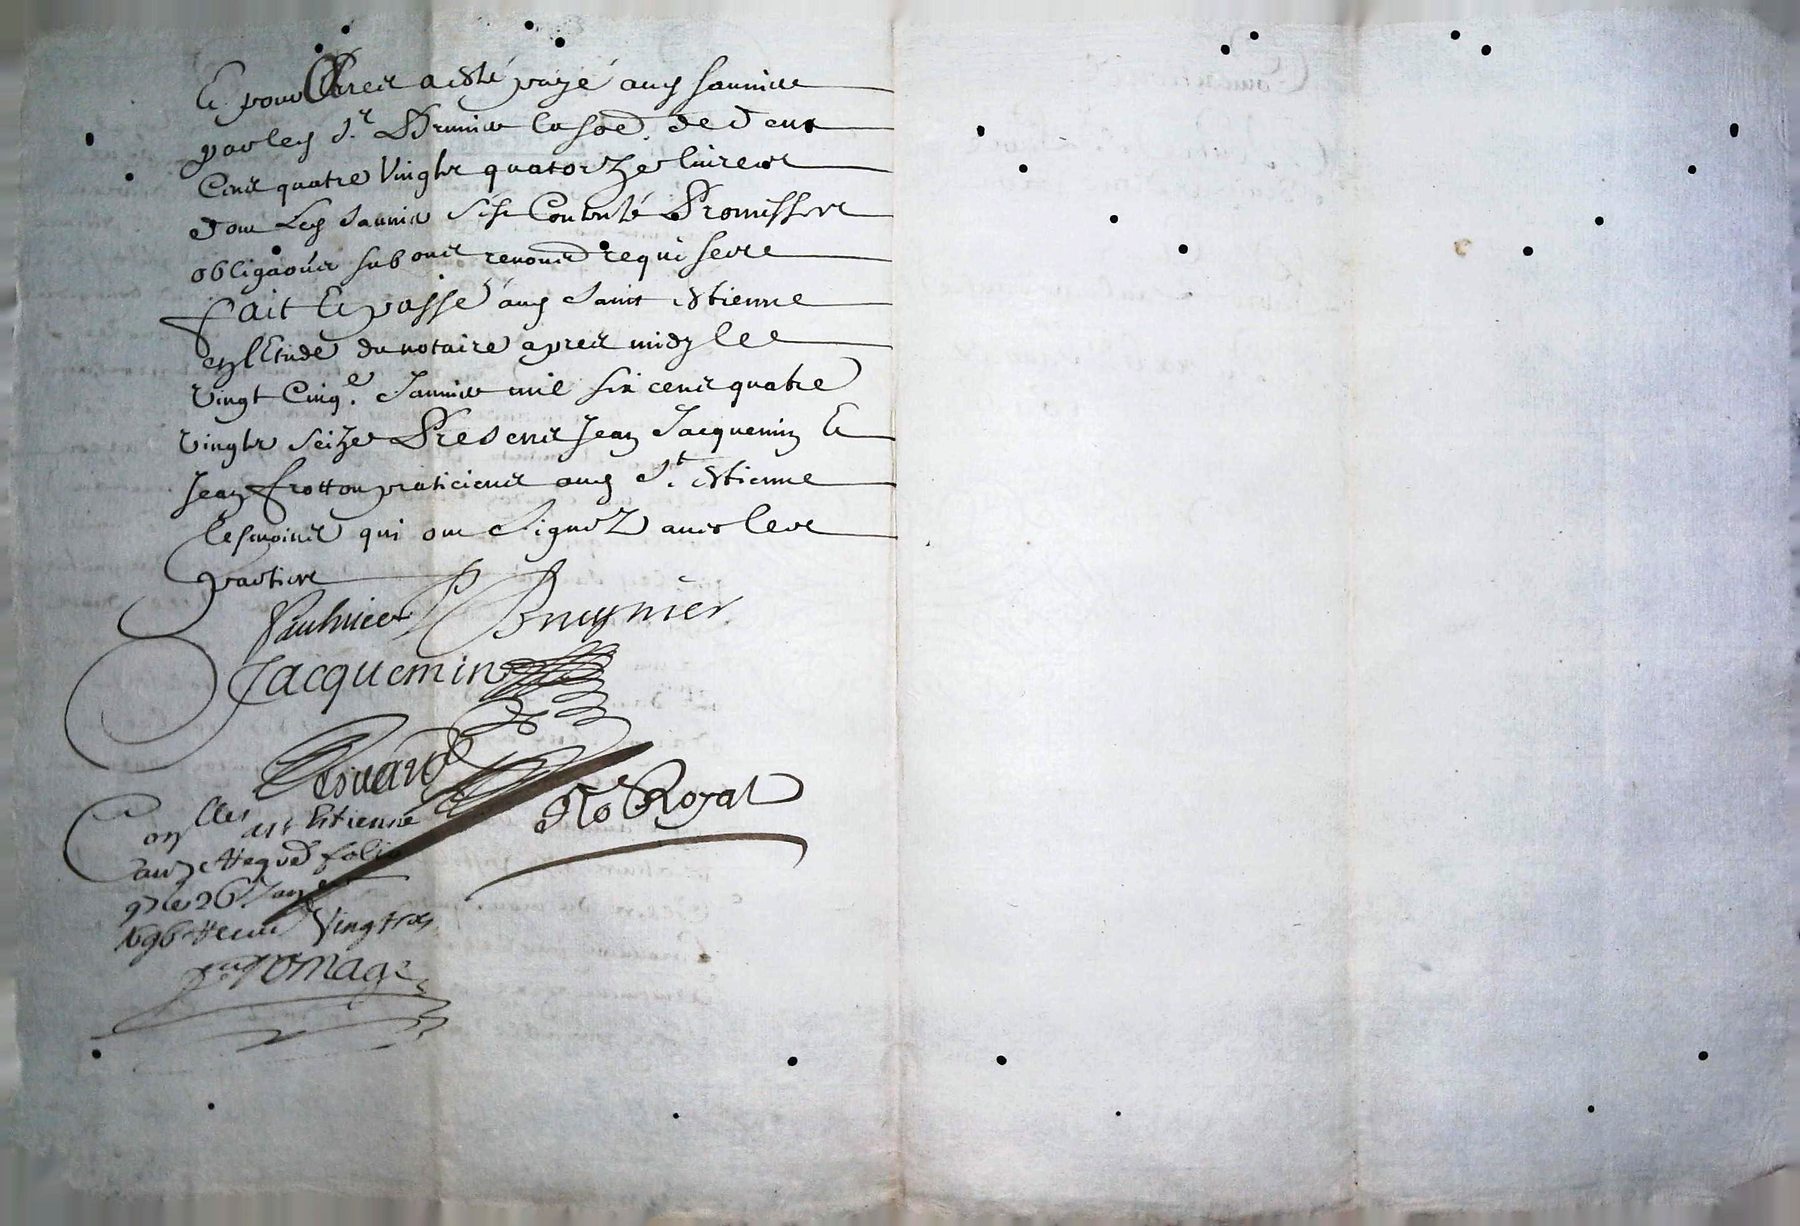 Et pour Arres a esté payé aud Saunier
par led Sr Brunier la som̄e de deux
Cens quatre Vingts quatorze livres
dont Led Saunier s'est Contenté Promisses
obligaōns submis renonc̄ requises
fait Et passé aud Saint Estienne
en l'Etude du notaire apres midy le
vingt Cinqe Janvier mil six cens quatre
vingts seize Presens Jean Jacquemin Et
Jean frotton praticiens aud St Estienne
tesmoins qui ont Signez avec les
parties
Saulnier Brunier
Jacquemin
No Royal
Con̄llé a St Estienne
folio
97 le 26 Janer
1696 Vingt
romage